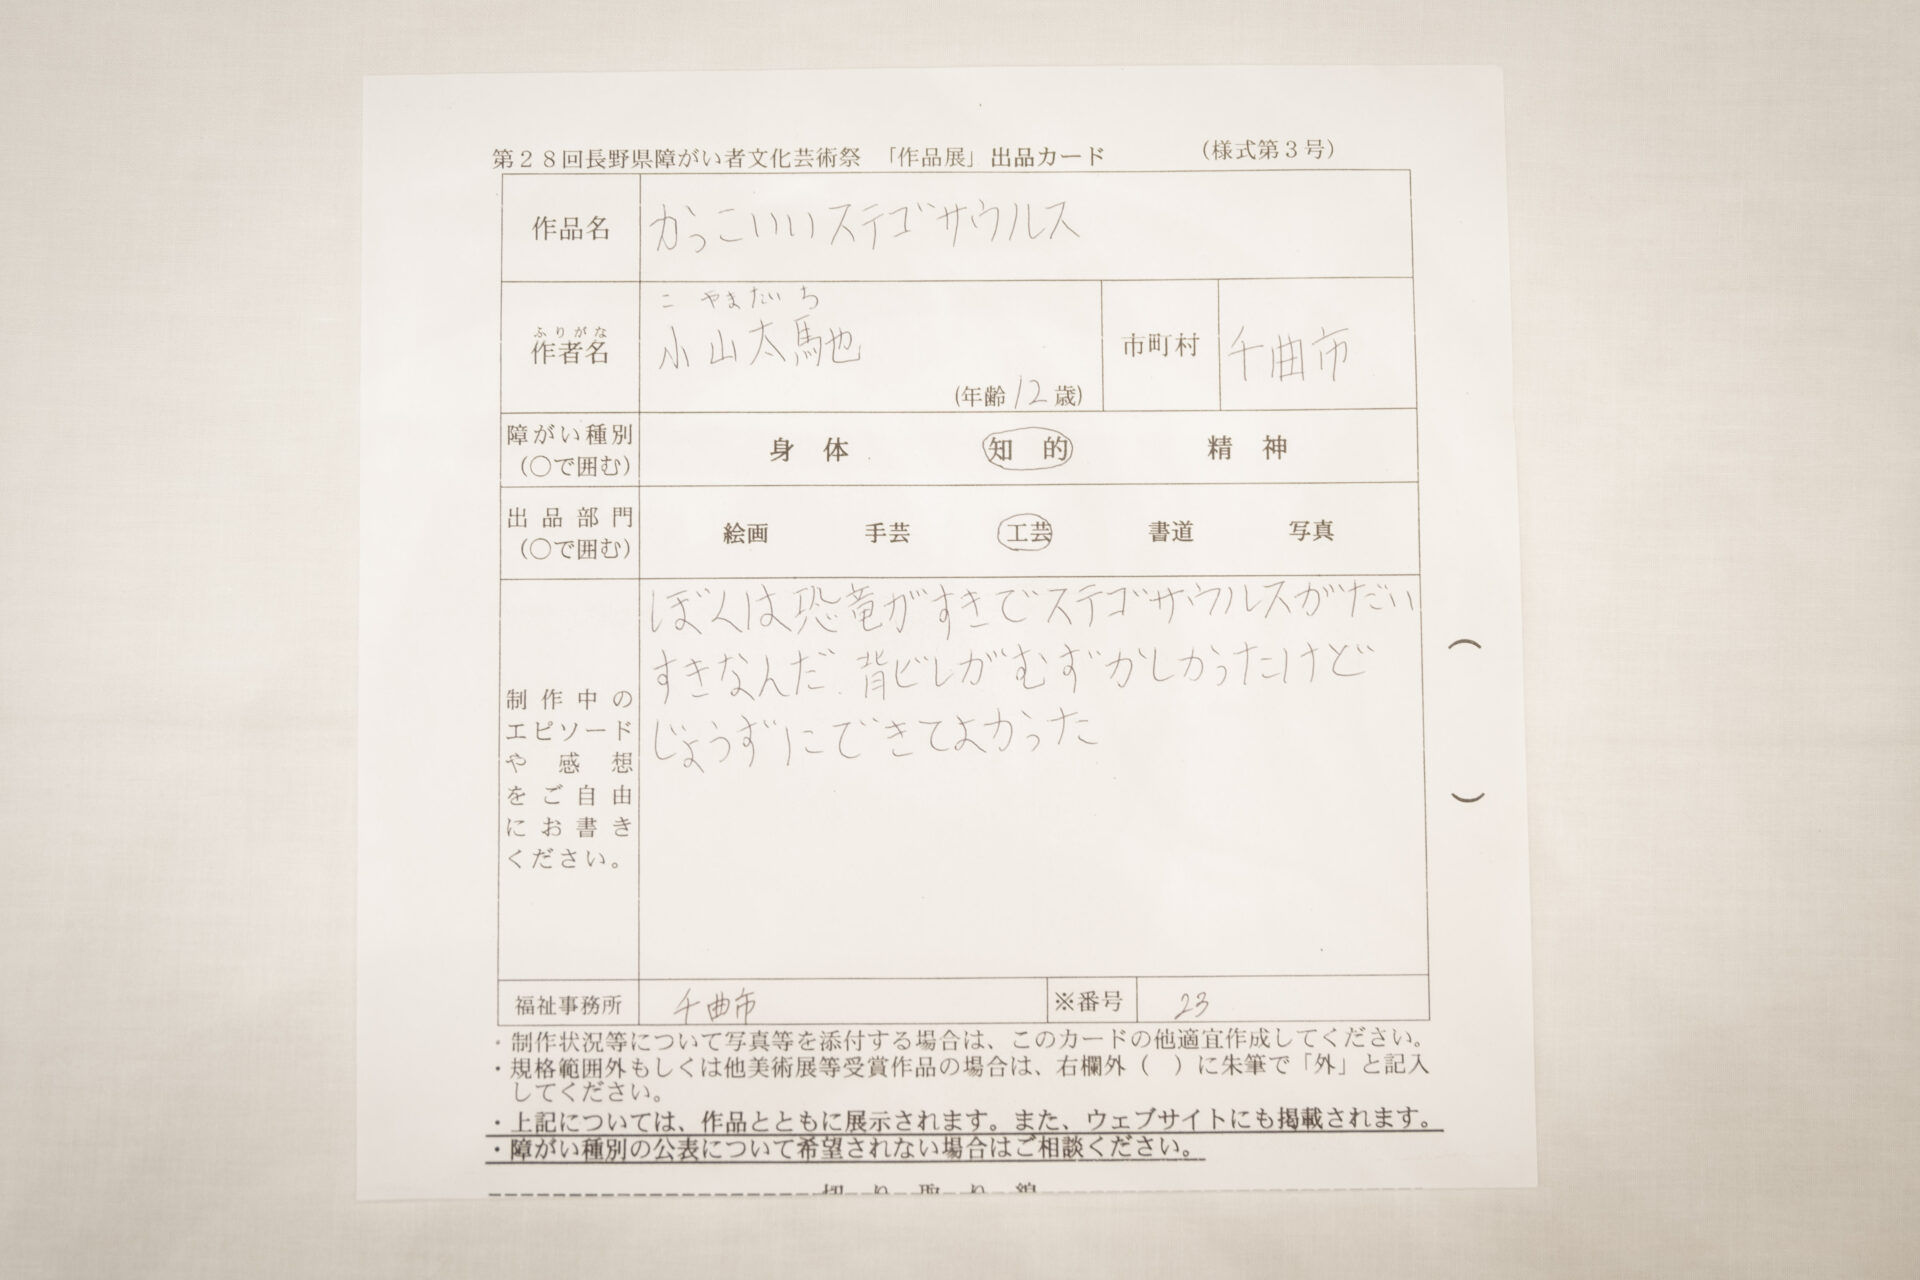 第28回長野県障がい者文化芸術祭 「作品展」出品カード (様式第3号)
作品名 かっこいいステゴサウルス
ふりがな こやまだいち
作者名 小山太馳
(年齢12歳)
市町村 千曲市
障がい種別 (○で囲む) 身体 知的 精神
出品部門 (○で囲む) 絵画 手芸 工芸 書道 写真
ぼくは恐竜がすきでステゴサウルスがだい
すきなんだ.背ビレがむずかしかったけど
じょうずにできてよかった
制作中の
エピソード
や感想
をご自由
にお書き
ください。
( )
福祉事務所 千曲市 ※番号 23
・制作状況等について写真等を添付する場合は、このカードの他適宜作成してください。
・規格範囲外もしくは他美術展等受賞作品の場合は、右欄外( )に朱筆で「外」と記入
してください。
・上記については、作品とともに展示されます。また、ウェブサイトにも掲載されます。
・障がい種別の公表について希望されない場合はご相談ください。
切り取り線